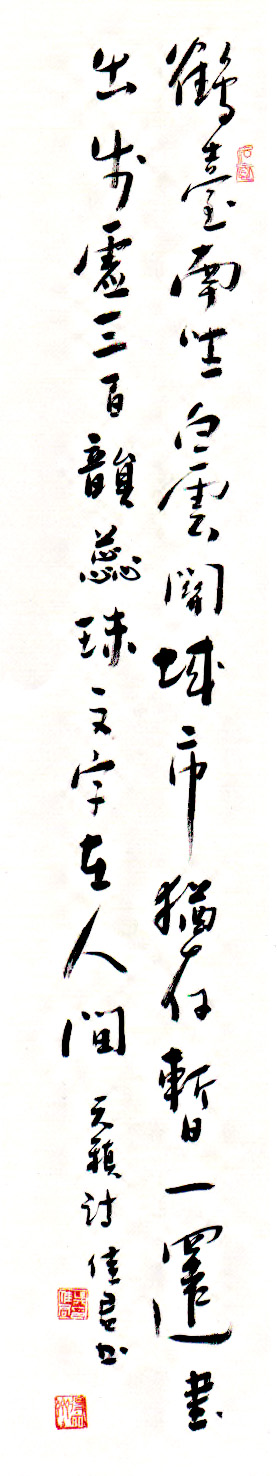 鶴臺南望白雲關城市猶存暫一還書
出步虛三百韻蕊珠文字在人間
詩佳君書